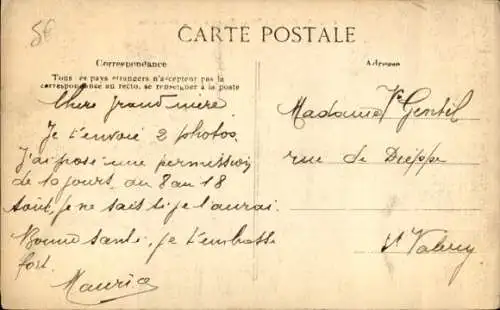 5€
CARTE POSTALE
Correspondance
Adresse
Tous les pays étrangers n'acceptent pas la
correspondance au recto, se renseigner à la poste
Chère grand mère
Je t'envoie 2 photos.
J'ai posé une permission
de 10 jours, du 8 au 18
août, je ne sais si je l'aurai.
Bonne santé, je t'embrasse
fort.
Maurice
Madame Vve Gentil
rue de Dieppe
St Valery